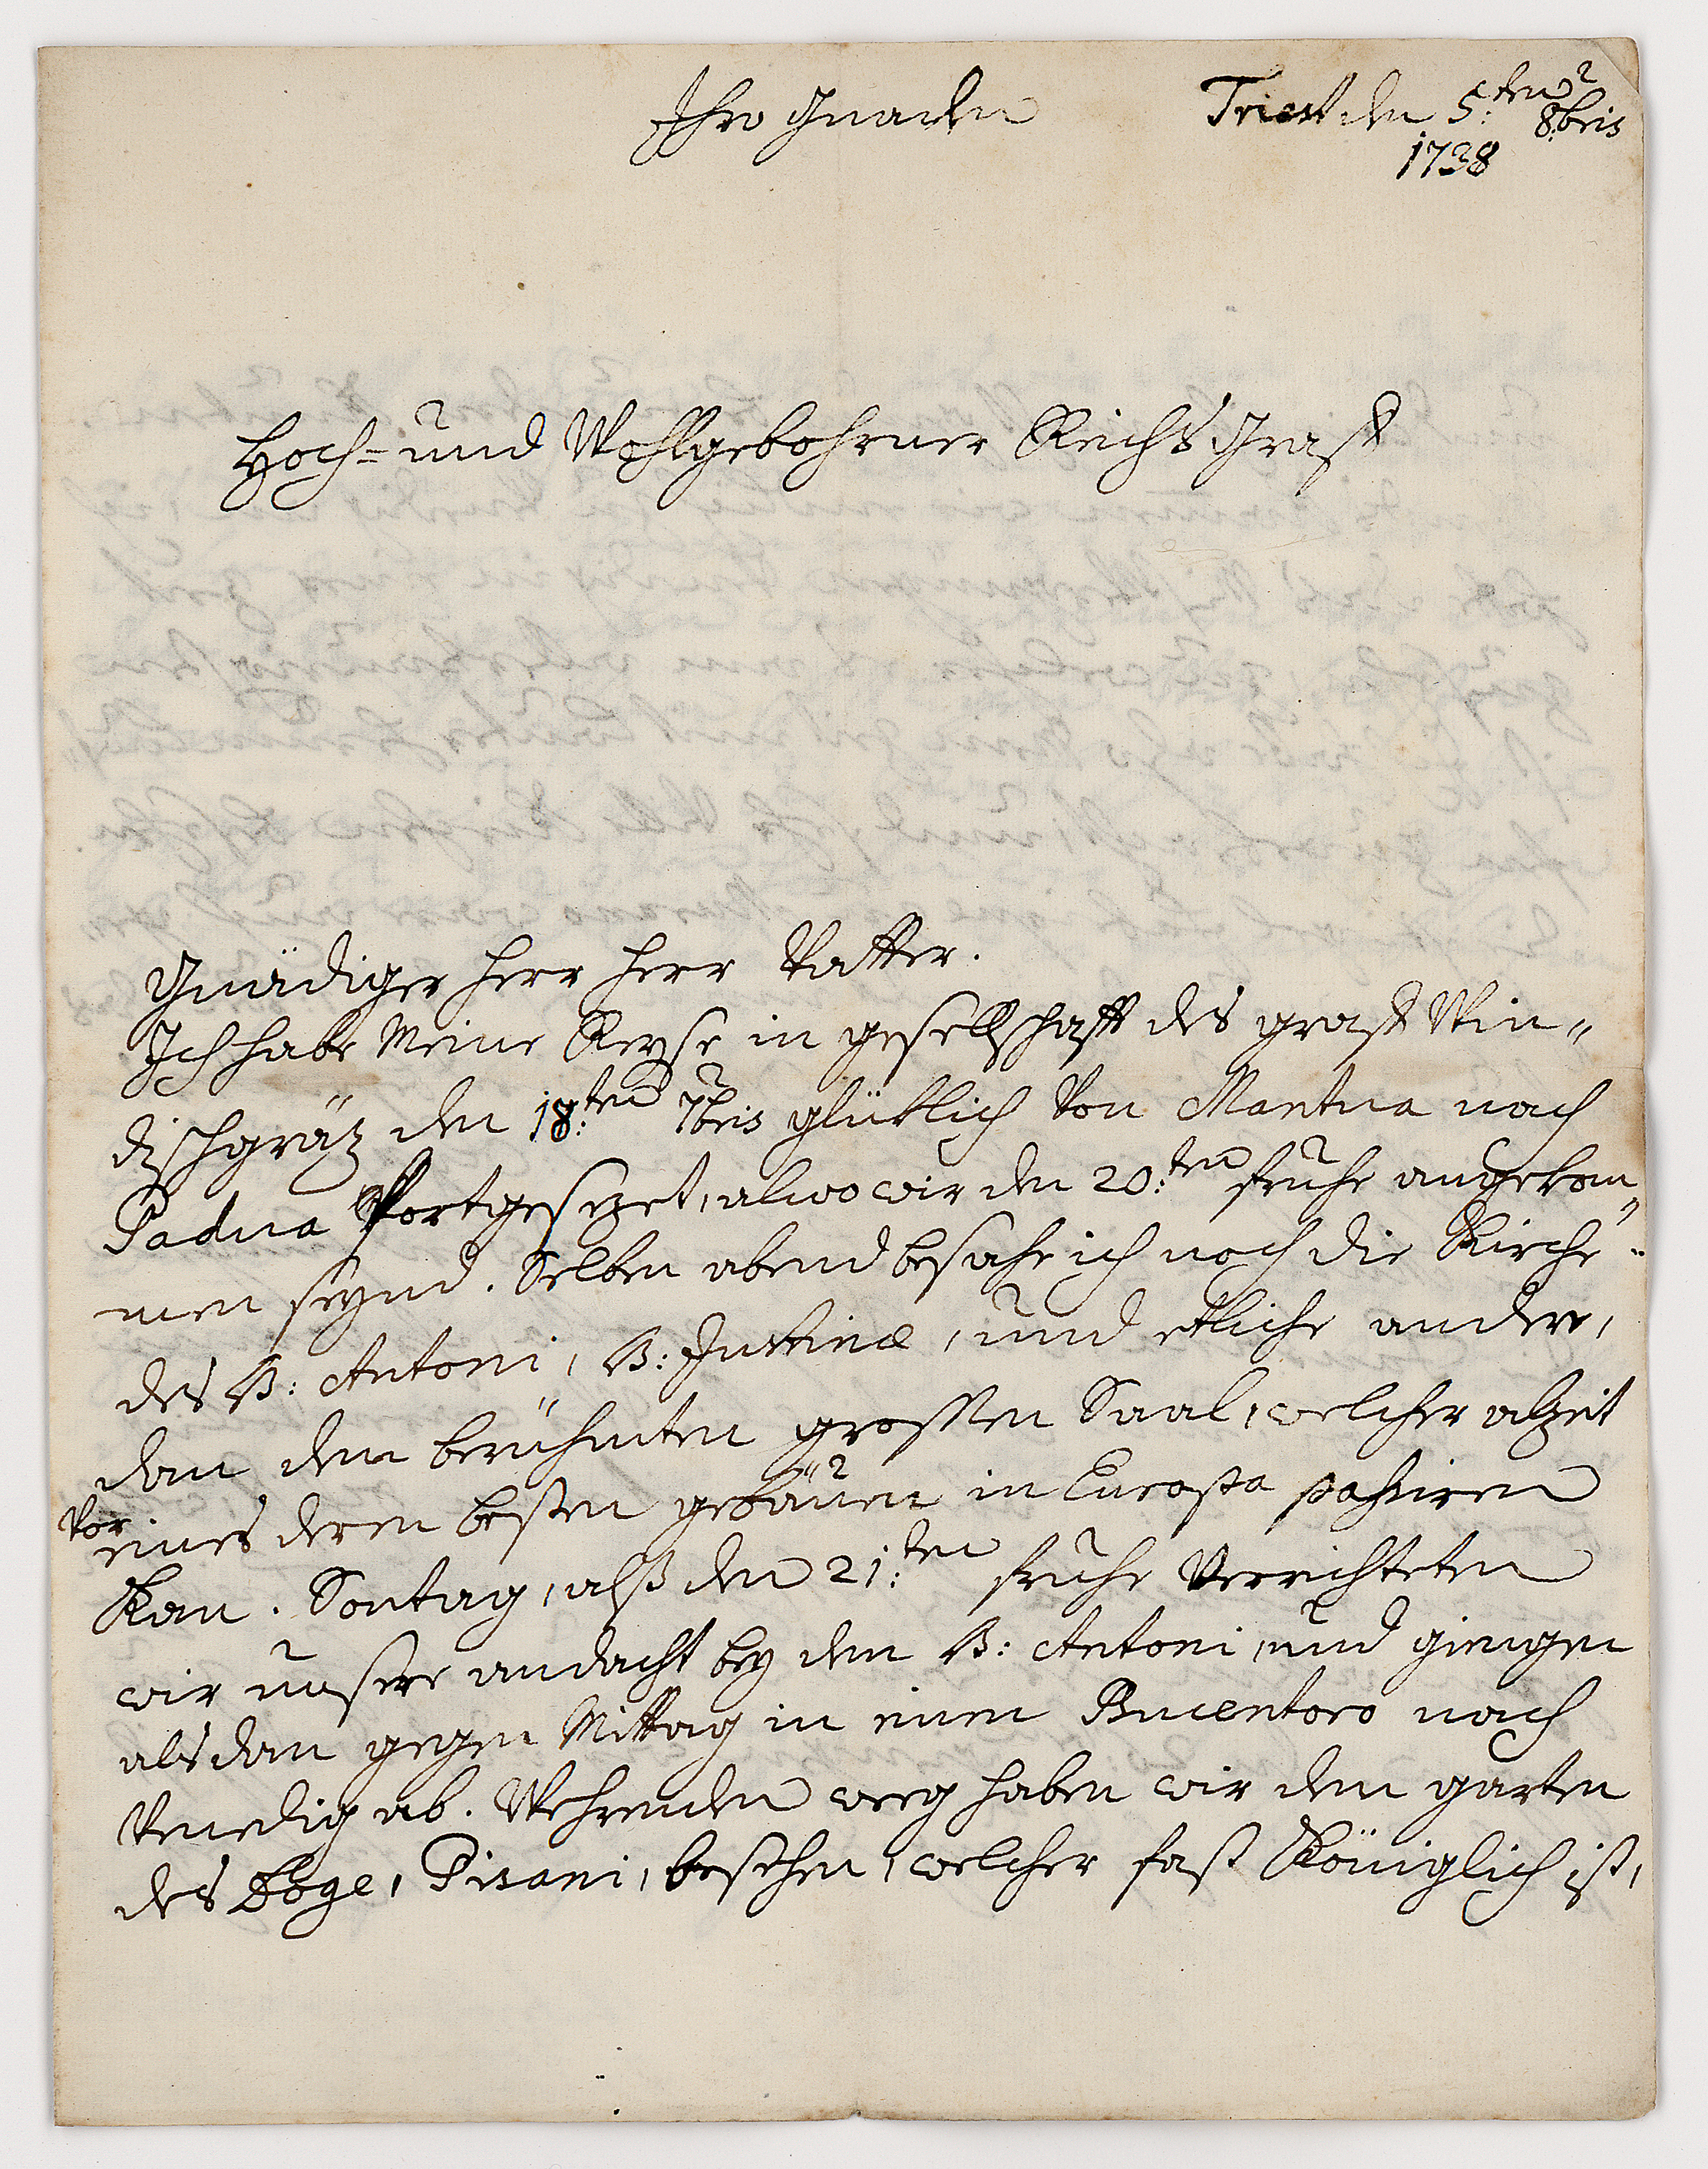 Ihro Gnaden
Triest den 5:ten 8bris
1738
Hoch- und Wohlgebohrner Reichs Graff
Gnädiger herr herr Vatter.
Ich habe Meine Reyse in gesellschafft des graff Win„
dischgräz den 18:ten 7bris glüklich Von Mantua nach
Padua Fortgesezet, alwo wir den 20:ten fruhe angekom„
men seynd. Selben abend besahe ich noch die Kirche„
des S: Antoni, S: Justinæ, und etliche andere,
dan den berühmten grossen Saal, welcher alzeit
Vor eines deren besten gebäuen in Europa passiren
Kan. Sontag, alß den 21:ten fruhe Verrichteten
wir unsere andacht bey den S: Antoni, und giengen
alsdan gegen Mittag in einen Bucentoro nach
Venedig ab. Wehrenden weeg haben wir den garten
des Doge, Pisani, besehen, welcher fast Königlich ist,